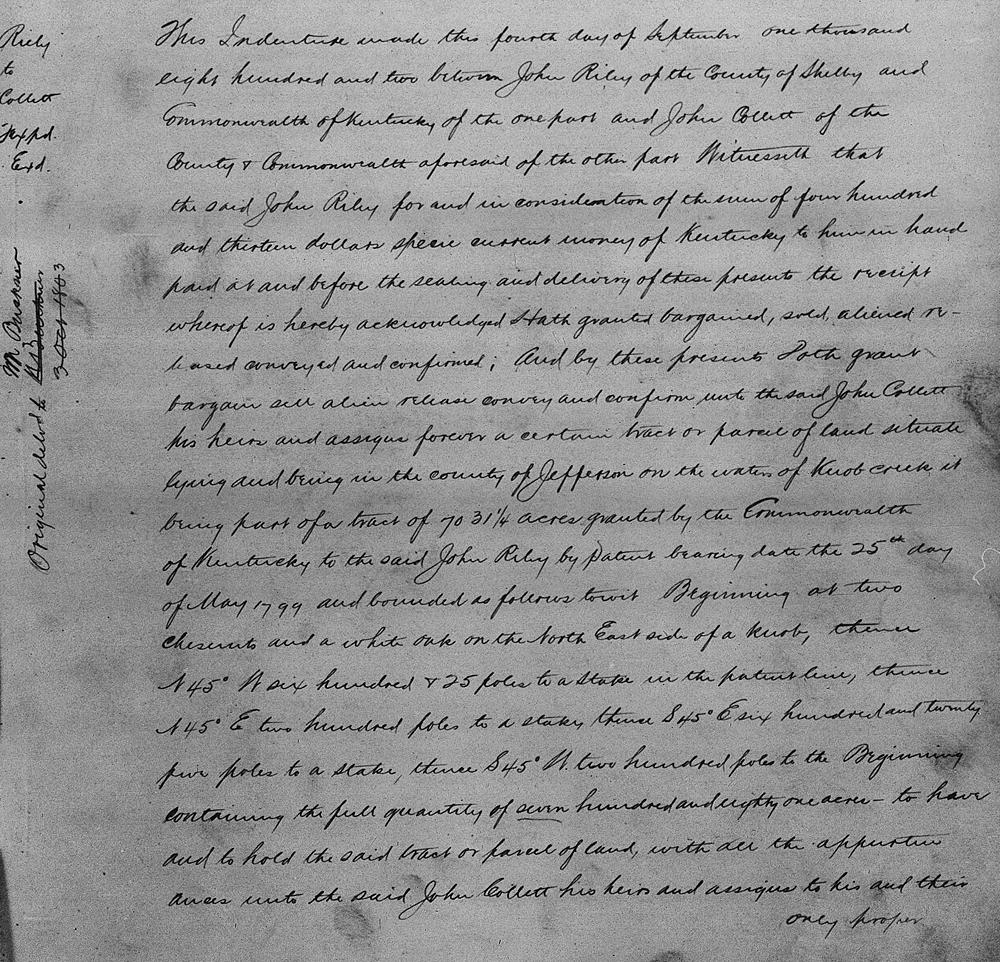 Riely
to
Collett
Exd.
Original deld to M Buckner
3 Oct 1803
This Indenture made this fourth day of September one thousand
eight hundred and two between John Riley of the County of Shelby and
Commonwealth of Kentucky of the one part and John Collett of the
County & Commonwealth aforesaid of the other part Witnesseth that
the said John Riley for and in consideration of the sum of four hundred
and thirteen dollars specie current money of Kentucky to him in hand
paid at and before the sealing and delivery of these presents the receipt
whereof is hereby acknowledged Hath granted bargained, sold, aliened re-
leased conveyed and confirmed; And by these presents Doth grant
bargain sell alien release convey and confirm unto the said John Collett
his heirs and assigns forever a certain tract or parcel of land situate
lying and being in the county of Jefferson on the waters of Knob creek it
being part of a tract of 7031¼ acres granted by the Commonwealth
of Kentucky to the said John Riley by patent bearing date the 25th day
of May 1799 and bounded as follows towit Beginning at two
chesnuts and a white oak on the North East side of a knob, thence
N 45° W six hundred & 25 poles to a stake in the patent line, thence
N 45° E two hundred poles to a stake, thence S 45° E six hundred and twenty
five poles to a stake, thence S 45° W. two hundred poles to the Beginning
containing the full quantity of seven hundred and eighty one acres - to have
and to hold the said tract or parcel of land, with all the appurten
ances unto the said John Collett his heirs and assigns to his and their
only proper